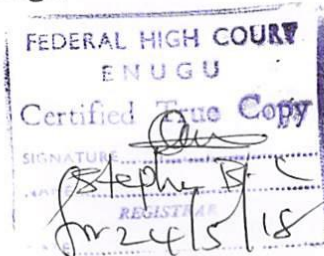 FEDERAL HIGH COURT
ENUGU
Certified True Copy
SIGNATURE
REGISTRAR
24/5/18